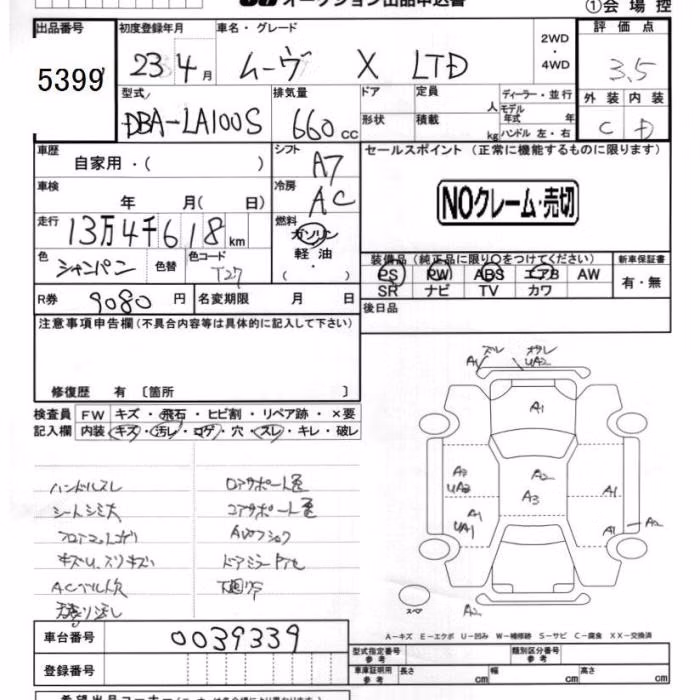 オークション出品申込書
①会場控
出品番号 初度登録年月 車名・グレード 評価点
5399 23 4月 ムーヴ X LTD 2WD・4WD 3.5
型式 排気量 ドア 定員 人 ディーラー・並行 外装 内装
DBA-LA100S 660cc 形状 積載 kg モデル年式 年 ハンドル 左・右 C D
車歴 シフト セールスポイント (正常に機能するものに限ります)
自家用・( ) A7
車検 冷房 NOクレーム・売切
年 月( 日) AC
走行 燃料
13万4千618km ガソリン
色 色替 色コード 軽油 装備品 (純正品に限り○をつけてください) 新車保証書
シャンパン T27 ・( ) PS PW ABS エアB AW 有・無
SR ナビ TV カワ
R券 9080円 名変期限 月 日 後日品
注意事項申告欄(不具合内容等は具体的に記入して下さい)
修復歴 有 〔箇所 〕
検査員 FW キズ・飛石・ヒビ割・リペア跡・×要
記入欄 内装 キズ・汚レ・コゲ・穴・スレ・キレ・破レ
ズレ
A1 UA2
A1
ハンドルスレ
シートシミ大
ACベルト欠
A2 A2 A1
UA2 A3
A1
UA1 A1 A2
スペア A2
車台番号 0039339
A-キズ E-エクボ U-凹み W-補修跡 S-サビ C-腐食 XX-交換済
登録番号
型式指定番号 参考 類別区分番号 参考
車庫証明用 参考 長さ cm 幅 cm 高さ cm
希望出品コーナー